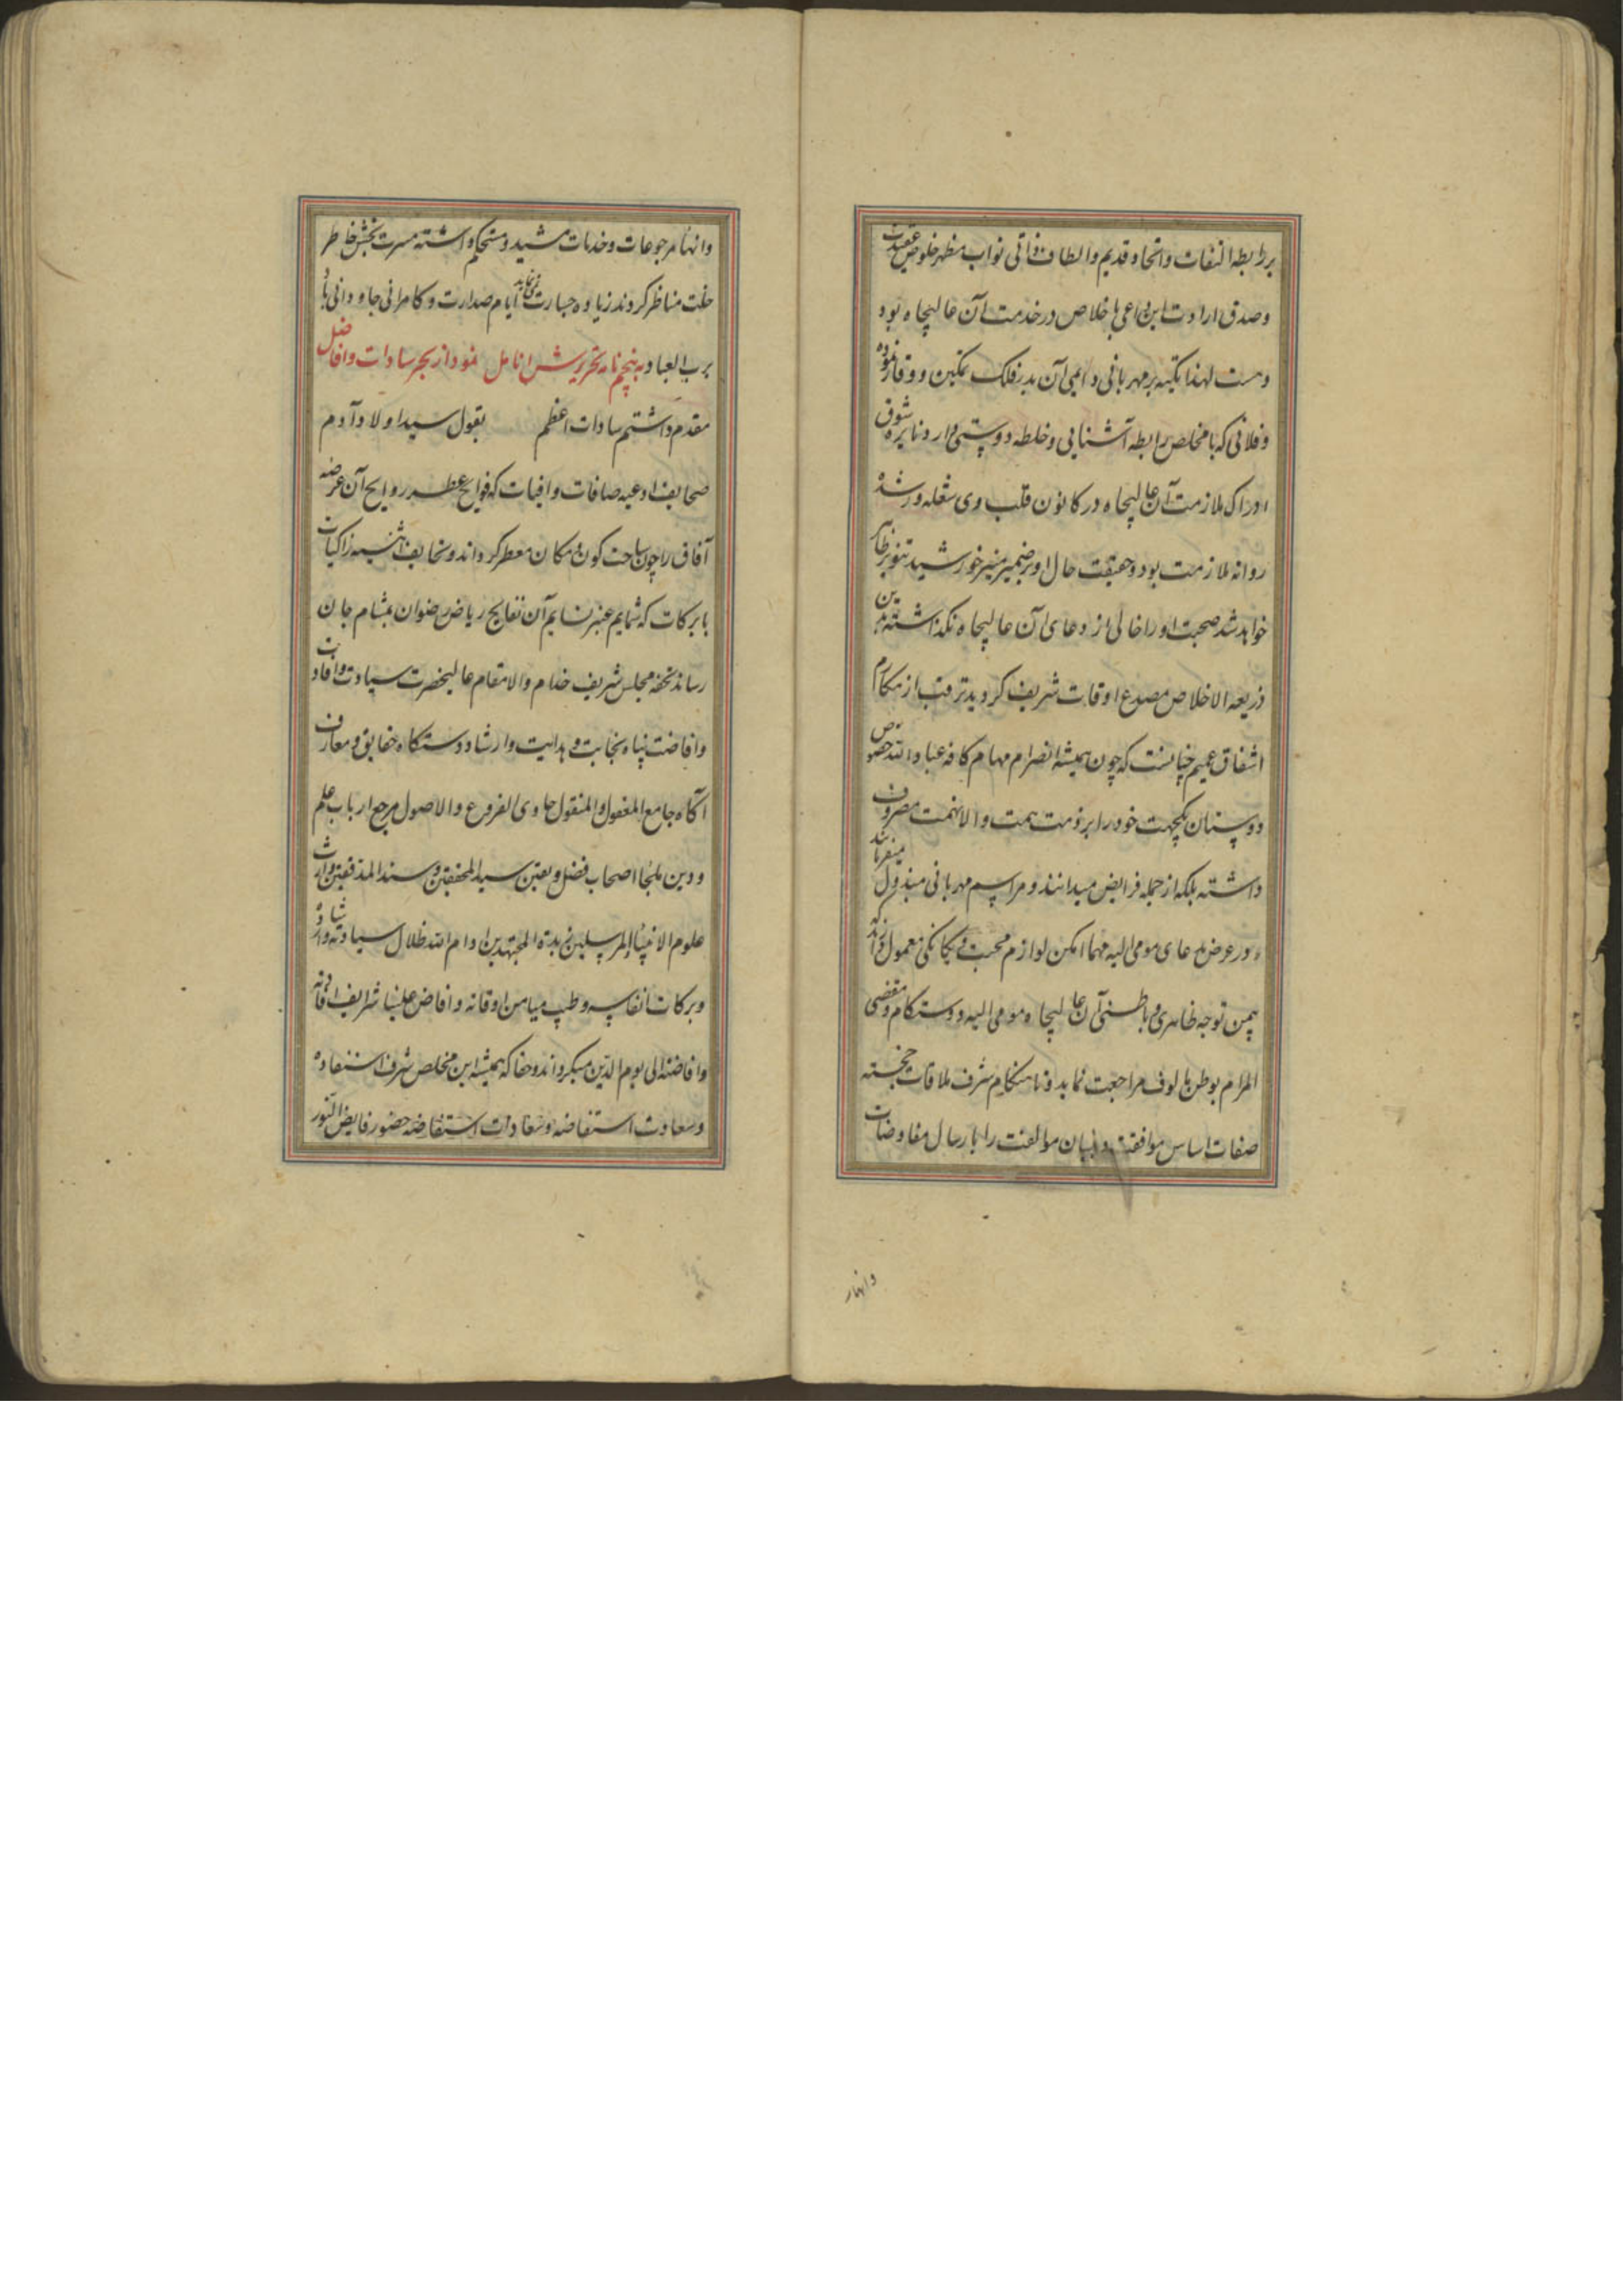 بر رابطه التفات و اتحاد قدیم و الطاف ذاتی نواب مظهر خلوص عقیدت
و صدق ارادت این داعی با خلاص در خدمت آن عالیجاه بود
و هست لهذا تکیه بر مهربانی دایمی آن بدر فلک تمکین و وقار نموده
و فلانی که با مخلص رابطه آشنایی و خلطه دوستی دارد و نایره شوق
ادراک ملازمت آن عالیجاه در کانون قلب وی شعله ور شده
روانه ملازمت بود و حقیقت حال او بر ضمیر منیر خورشید تنویر ظاهر
خواهد شد صحبت او را خالی از دعای آن عالیجاه نکذاشته بدین
ذریعه الاخلاص مصدع اوقات شریف کردید ترقب از مکارم
اشفاق عمیم چنانست که چون همیشه انصرام مهام کافه عباد الله خصوص
دوستان یکجهت خود را بر ذمت همت والا نهمت مصروف
داشته بلکه از جمله فرایض میدانند و مراسم مهربانی مبذول میفرمایند
در عرض مدعای مومی الیه مهما امکن لوازم محبت و یکانکی معمول دارند که
بیمن توجه ظاهری و باطنی آن عالیجاه مومی الیه دوستکام و مقضی
المرام بوطن مالوف مراجعت نماید و تا هنکام شرف ملاقات خجسته
صفات اساس موافقت و بنیان موالفت را بارسال مفاوضات
وانهار
وانهاء مرجوعات و خدمات مشید و مستحکم داشته مسرت بخش خاطر
خلت مناظر کردند زیاده جسارت نمی نماید ایام صدارت و کامرانی جاودانی باد
برب العباد به پنجم نامه تحریرش انامل نمود از بحر سادات و افاضل
مقدم داشتم سادات اعظم بقول سید اولاد آدم
صحایف ادعیه صافات وافیات که فوایح عطر روایح آن عرصه
آفاق را چون ساحت کون و مکان معطر کرداند و صحایف اثنیه زاکیات
بابرکات که شمایم عنبر نسایم آن نفایح ریاض رضوان بمشام جان
رساند تحفه مجلس شریف خدام والامقام عالیحضرت سیادت و افادت
و افاضت پناه نجابت و هدایت و ارشاد دستکاه حقایق و معارف
آکاه جامع المعقول والمنقول حاوی الفروع والاصول مرجع ارباب علم
و دین ملجاء اصحاب فضل و یقین سید المحققین و سند المدققین وارث
علوم الانبیاء والمرسلین زبدة المجتهدین ادام الله ظلال سیادته وارشاده
و برکات انفاسه و طیب میامن اوقاته و افاض علینا شرایف افاداته
و افاضته الی یوم الدین میکرداند و حقا که همیشه این مخلص شرف استفاده
و سعادت استفاضه و سعادات استفاضه حضور فایض النور